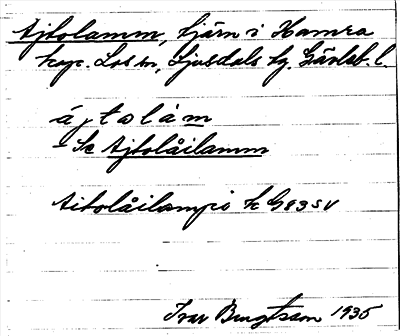 Ajtolamm, tjärn i Hamra
kap. Los sn, Ljusdals tg. Gävleb. l.
ájtolám
= Se Ajtolåilamm
Aitolåilampi k G83SV
Ivar Bengtsson 1935